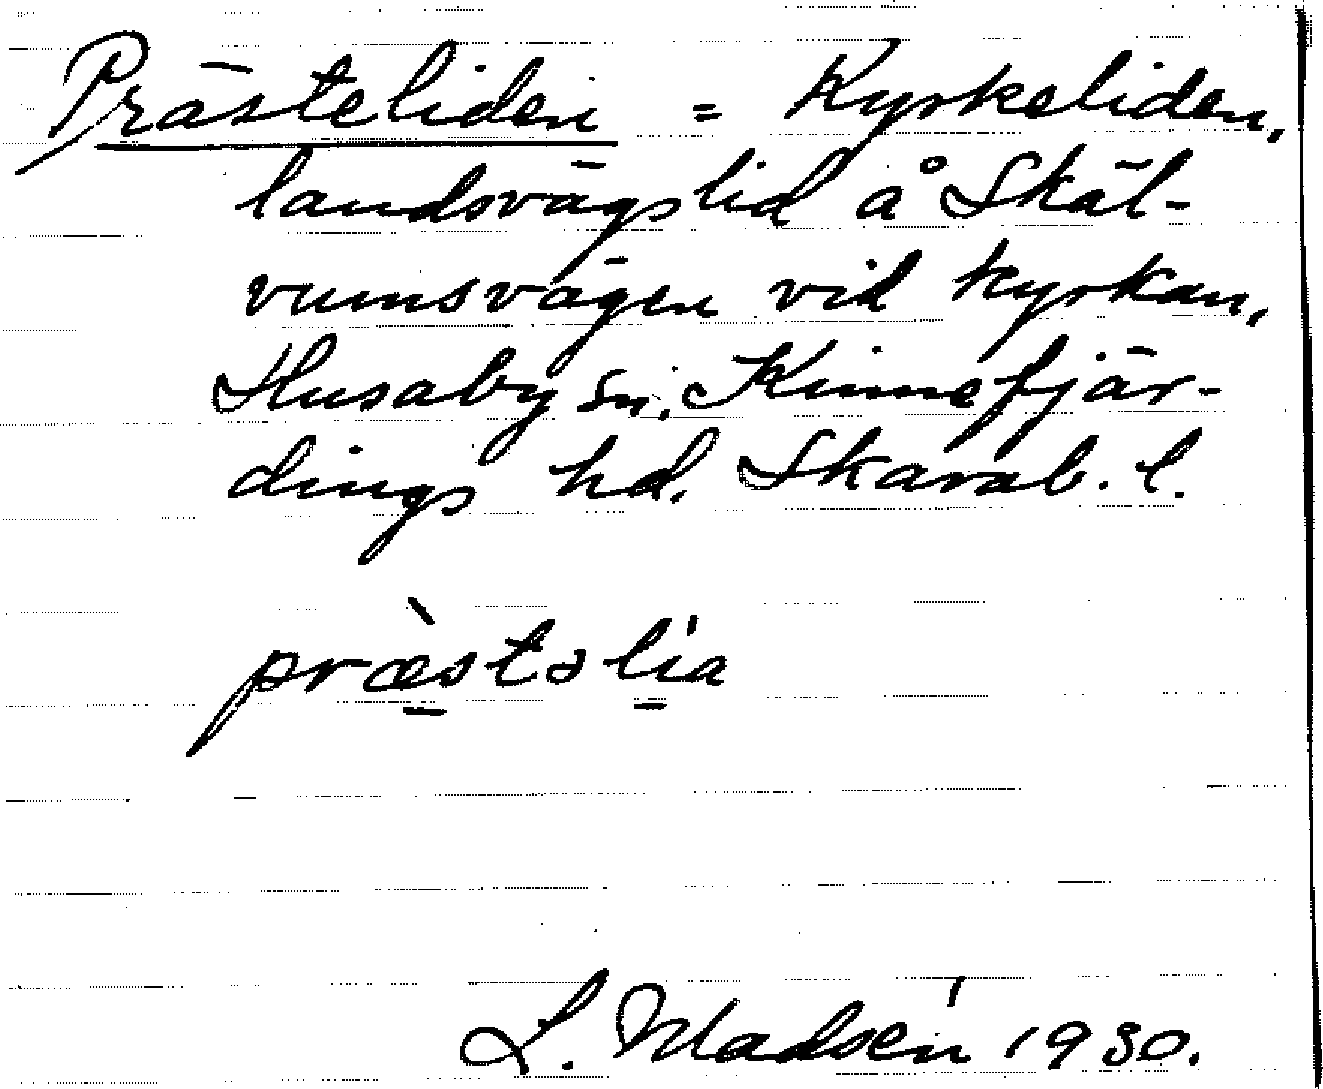 Prästeliden = Kyrkeliden,
landsvägslid å Skäl-
vumsvägen vid kyrkan,
Husaby sn. Kinnefjär-
dings hd. Skarab. l.
præ̀stəlía
L. Madsén 1930.